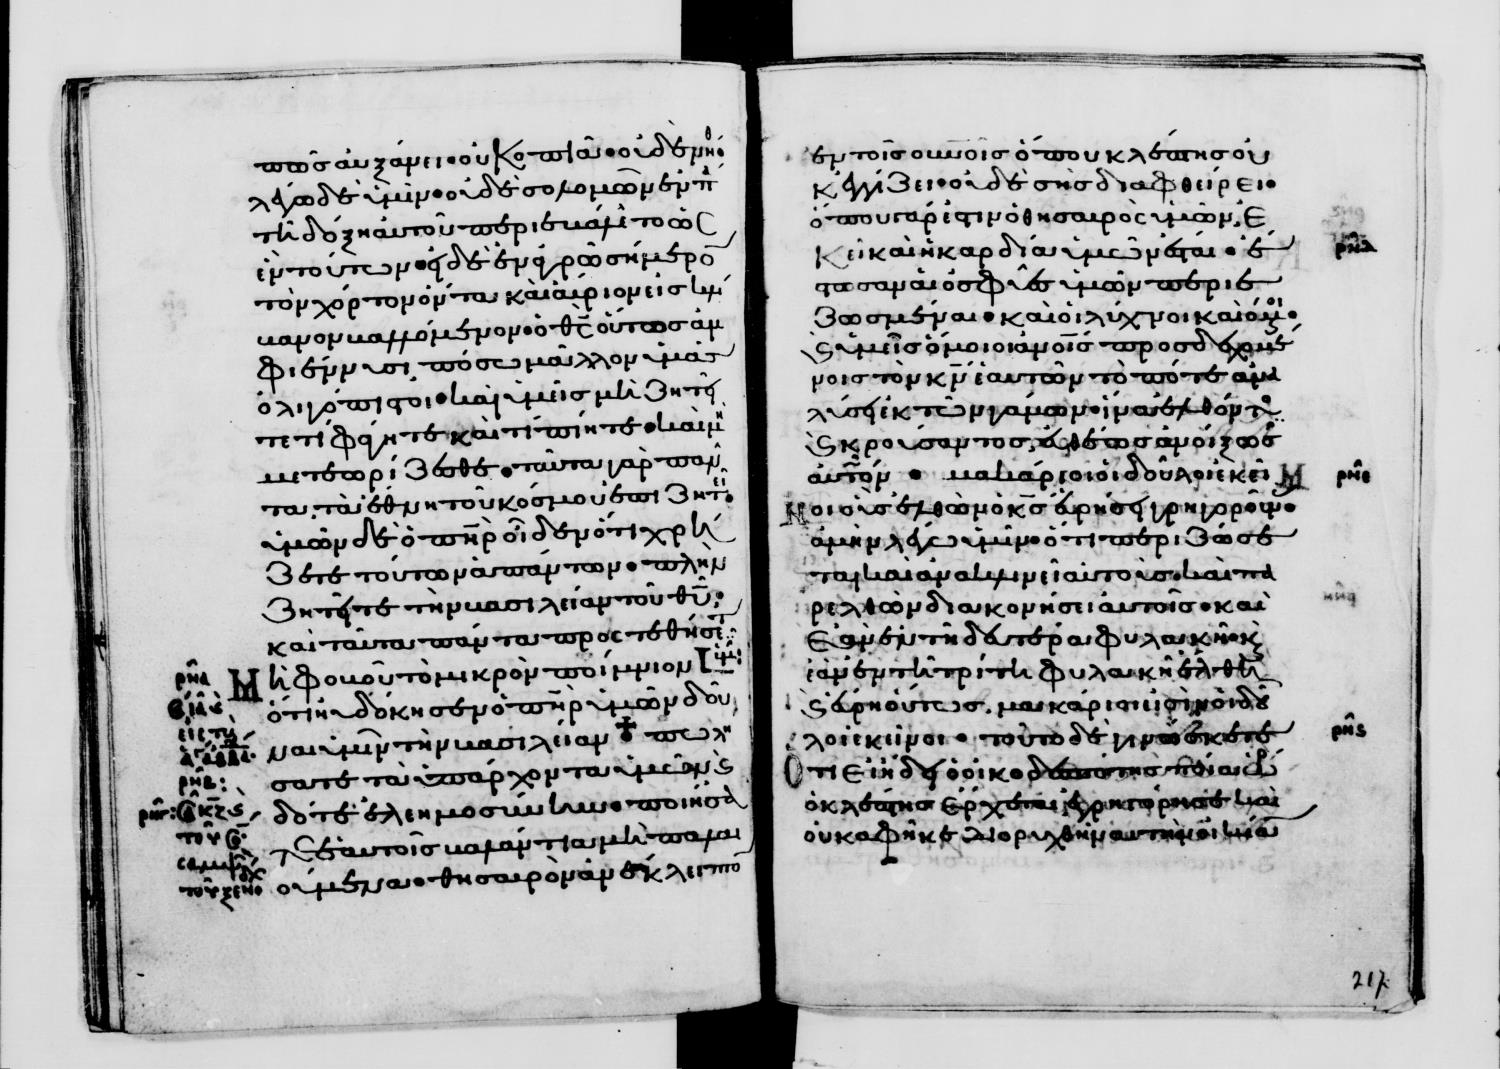 πῶς αυξάνει· οὐ κοπιᾶ· οὐδὲ νήθ·
λέγω δὲ ὑμῖν· οὐδὲ σολομῶν ἐν π
τῆ δόξη αὐτοῦ περιεβάλετο ὡς
ἓν τούτων· εἰ δὲ ἐν ἀγρῶ σήμερο
τὸν χόρτον ὄντα καὶ αὔριον εἰς κλί
βανον βαλλόμενον· ὁ θς οὕτως ἀμ
φιέννυσι, πόσω μᾶλλον ὑμᾶς
ὀλιγόπιστοι· καὶ ὑμεῖς μὴ ζητεῖ
τε τί φάγητε καὶ τί πίητε· καὶ μὴ
μετεωρίζεσθε· ταῦτα γὰρ πάν
τα, τὰ ἔθνη τοῦ κόσμου ἐπιζητεῖ·
ὑμῶν δὲ ὁ πηρ οἶδεν ὅτι χρή
ζετε τούτων ἁπάντων· πλὴν
ζητεῖτε τὴν βασιλείαν τοῦ θυ·
καὶ ταῦτα πάντα προστεθήσετ
Μὴ φοβοῦ τὸ μικρὸν ποίμνιον
ὅτι ηυδόκησεν ὁ πηρ ὑμῶν δοῦ
ναι ὑμῖν τὴν βασιλείαν + πωλή
σατε τὰ ὑπάρχοντα ὑμῶν κ
δότε ἐλεημοσύνην· ποιήσα
τε ἑαυτοῖς βαλάντια μὴ παλαι
ούμενα· θησαυρὸν ἀνέκλειπτο
ρπδ
ρπβ:
ρπγ:
ἐν τοῖς οὐνοῖς ὅπου κλέπτης οὐ
κ ἐγγίζει· οὐδὲ σὴς διαφθείρει·
ὅπου γάρ ἐστιν ὁ θησαυρὸς ὑμῶν, ἐ
κεῖ καὶ ἡ καρδία ὑμῶν ἔσται· ἔ
στωσαν αἱ ὀσφύες ὑμῶν περιε
ζωσμέναι· καὶ οἱ λύχνοι καιόμ·
κ ὑμεῖς ὅμοιοι ἀνοῖς προσδεχομέ
νοις τὸν κν ἑαυτῶν τὸ πότε ἀνα
λύσει ἐκ τῶν γάμων· ἵνα ἐλθόντ
κ κρούσαντος, εὐθέως ἀνοίξωσ
αὐτόν· μακάριοι οἱ δοῦλοι ἐκεῖ
οι οὓς ἐλθὼν ὁ κς εὑρήσει γρηγορ
ἀμὴν λέγω ὑμῖν· ὅτι περιζώσε
ται καὶ ἀνακλινεῖ αὐτοὺς· καὶ πα
ρελθὼν διακονήσει αὐτοῖς· καὶ
ἐὰν ἐν τῆ δευτέρα φυλακῆ· κ
ἐὰν ἐν τῆ τρίτη φυλακῆ ἔλθη
κ εὕρη οὕτως, μακάριοι εἰσὶν οἱ δοῦ
λοι ἐκεῖνοι· τοῦτο δὲ γινώσκετε
ὅτι εἰ ἤδει ὁ οἰκοδεσπότης ποία
ὁ κλέπτης ἔρχεται ἐγρηγόρησε καὶ
οὐκ ἀφῆκε διορυχθῆναι
217